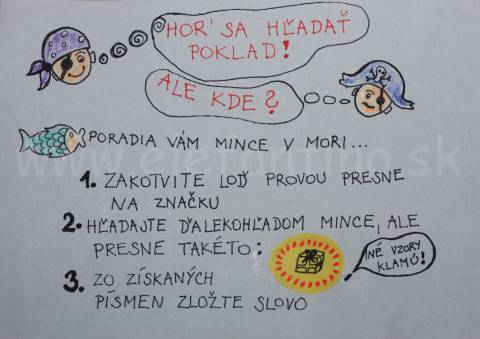 HOR' SA HĽADAŤ
POKLAD!
ALE KDE?
PORADIA VÁM MINCE V MORI...
1. ZAKOTVITE LOĎ PROVOU PRESNE
NA ZNAČKU
2. HĽADAJTE ĎALEKOHĽADOM MINCE, ALE
PRESNE TAKÉTO:
INÉ VZORY
KLAMÚ!
3. ZO ZÍSKANÝCH
PÍSMEN ZLOŽTE SLOVO
www.elefantino.sk